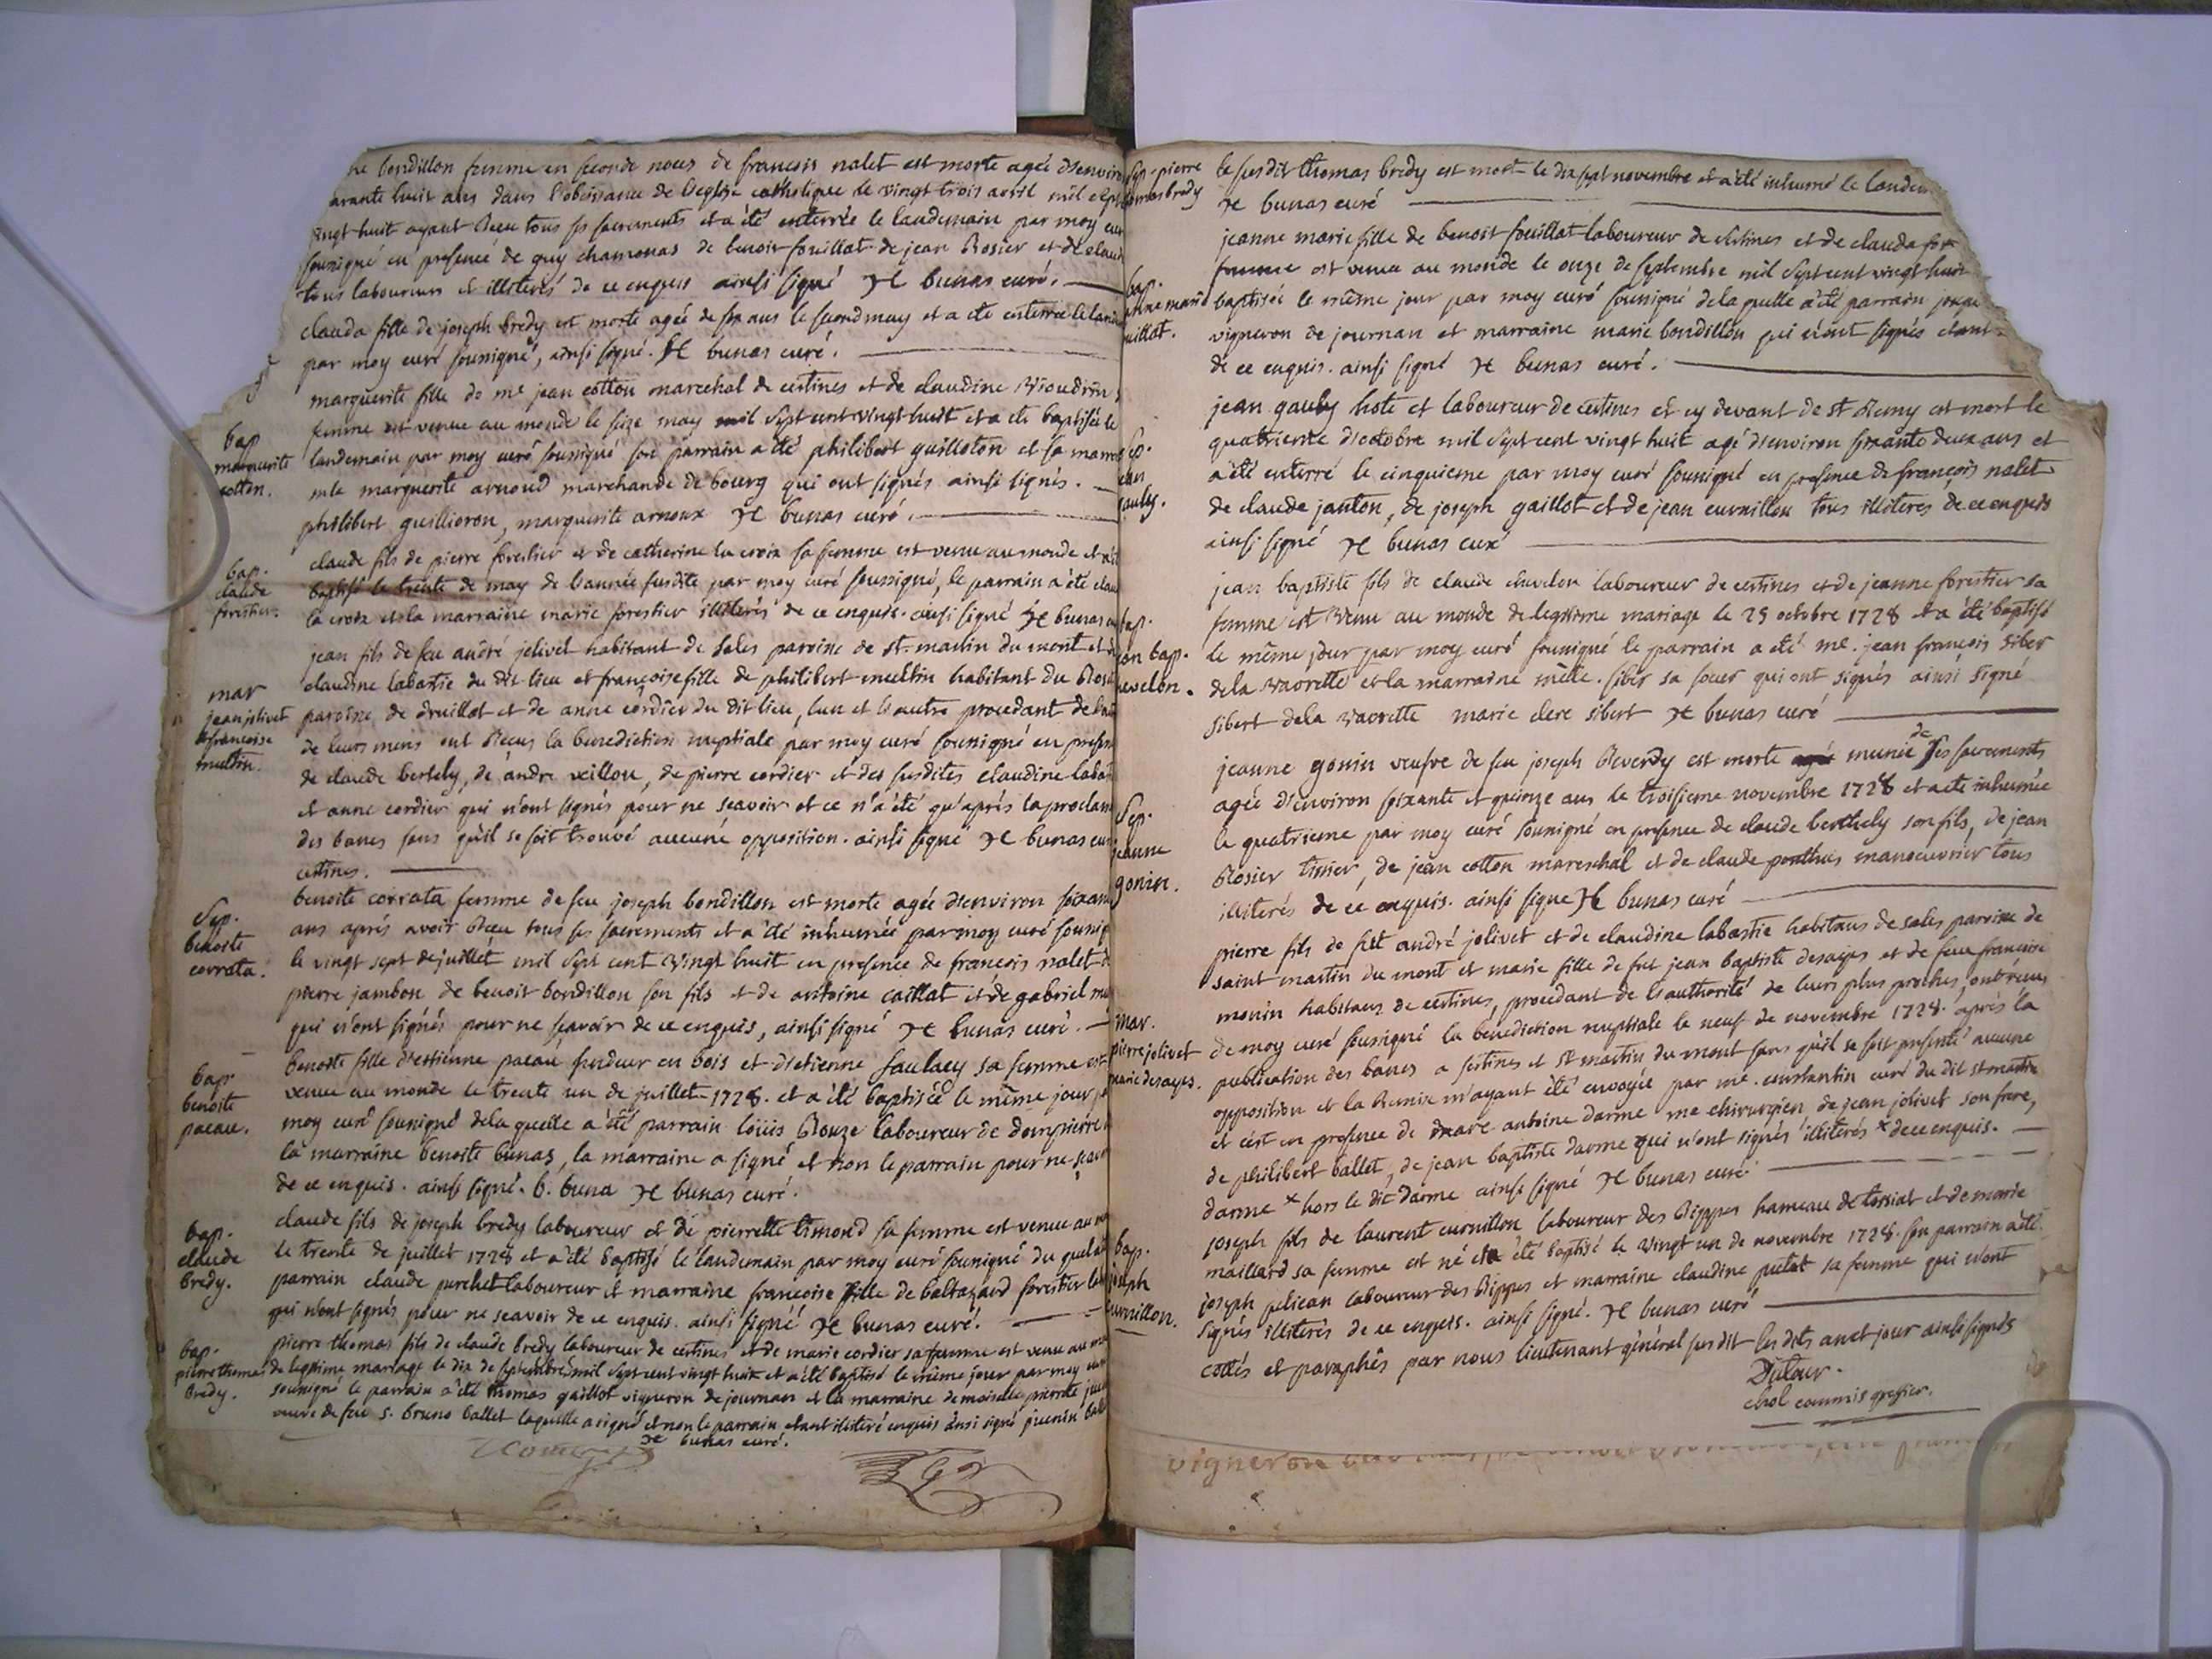 ne bondillon femme en seconde noces de francois nalet est morte agée d'environ
arante huit ans dans l'obeissance de l'eglise catholique le vingt trois avril mil sept
vingt huit ayant Receu tous ses sacrements et a été enterrée le landemain par moy curé
soussigné en presence de guy chamonas de benoit fouillat de jean Rosier et de claud
tous laboureurs et illiterés de ce enquis ainsi signé H bunas curé.
clauda fille de joseph bredy est morte agée de six ans le second may et a été enterrée le lande
par moy curé soussigné, ainsi signé. H bunas curé.
bap
marguerite
cotton.
marguerite fille de me jean cotton marechal de certines et de claudine
femme est venue au monde le seize may mil sept cent vingt huit et a été baptisée le
landemain par moy curé soussigné son parrain a été philibert guillioton et sa marre
mle marguerite arnoud marchande de bourg qui ont signés ainsi signés.
philibert guillioron, marguerite arnoux H bunas curé.
bap.
claude
forestier.
claude fils de pierre forestier et de catherine la croix sa femme est venu au monde et a été
baptisé le trente de may de l'année susdite par moy curé soussigné, le parrain a été claud
la croix et la marraine marie forestier illiterés de ce enquis. ainsi signé H bunas cu
mar
jean jolivet
& francoise
meltin.
jean fils de feu andré jolivet habitant de sales paroisse de st martin du mont et de
claudine labastie du dit lieu et françoise fille de philibert meltin habitant du
paroisse de druillat et de anne cordier du dit lieu, l'un et l'autre procedant de l'au
de leurs mens ont Receus la benediction nuptiale par moy curé soussigné en presen
de claude bertely, de andre veillou, de pierre cordier et des susdites claudine labas
et anne cordier qui n'ont signés pour ne scavoir et ce n'a été qu'après la proclam
des bancs sans qu'il se soit trouvé aucune opposition. ainsi signé H bunas curé
certines.
Sep.
benoite
corrata.
benoite corrata femme de feu joseph bondillon est morte agée d'environ soixan
ans aprés avoir Receu tous ses sacrements et a été inhumée par moy curé soussig
le vingt sept de juillet mil sept cent vingt huit en presence de francois nalet d
pierre jambon de benoit bondillon son fils et de antoine caillat et de gabriel
qui n'ont signés pour ne scavoir de ce enquis, ainsi signé H bunas curé.
bap.
benoite
pacau.
benoite fille d'estienne pacau fendeur en bois et d'etienne faulacy sa femme est
venue au monde le trente un de juillet 1728. et a été baptisée le même jour p
moy curé soussigné de la quelle a été parrain loüis Rouze laboureur de dompierre
la marraine benoite bunas, la marraine a signé et non le parrain pour ne scavo
de ce enquis. ainsi signé. b. buna H bunas curé.
bap.
claude
bredy.
claude fils de joseph bredy laboureur et de pierrette timond sa femme est venue au
le trente de juillet 1728 et a été baptisé le landemain par moy curé soussigné du quel a
parrain claude perchet laboureur et marraine francoise fille de baltazard forestier
qui n'ont signés pour ne scavoir de ce enquis. ainsi signé H bunas curé.
bap.
pierre thomas
bredy.
pierre thomas fils de claude bredy laboureur de certines et de marie cordier sa femme est venu au mon
de legitime mariage le dix de septembre mil sept cent vingt huit et a été baptisé le même jour par moy curé
soussigné le parrain a été thomas gaillot vigneron de journan et la marraine demoiselle pierrette
veuve de feu s. bruno ballet laquelle a signé et non le parrain etant illiteré enquis ainsi signé juenin ball
H bunas curé.
Sep. pierre
thomas bredy
le susdit thomas bredy est mort le dix sept novembre et a été inhumé le landem
H bunas curé
bap.
anne marie
uillat.
jeanne marie fille de benoit fouillat laboureur de certines et de clauda
femme est venue au monde le onze de septembre mil sept cent vingt huit
baptisée le même jour par moy curé soussigné de la quelle a été parrain
vigneron de journan et marraine marie bondillon qui n'ont signés etant
de ce enquis. ainsi signé H bunas curé.
Sep.
ean
gauly.
jean gauly hote et laboureur de certines et cy devant de st Remy est mort le
quatrieme d'octobre mil sept cent vingt huit agé d'environ soixante deux ans et
a été enterré le cinquieme par moy curé soussigné en presence de françois nalet
de claude janton, de joseph gaillot et de jean curnillon tous illiteres de ce enquis
ainsi signé H bunas curé
bap.
jean bap.
hevelon.
jean baptiste fils de claude chevelon laboureur de certines et de jeanne forestier sa
femme est venu au monde de legitime mariage le 25 octobre 1728 et a été baptisé
le même jour par moy curé soussigné le parrain a été me. jean françois siber
de la vaorette et la marraine melle. siber sa soeur qui ont signés ainsi signé
sibert de la vaorette marie clere sibert H bunas curé
Sep.
jeanne
gonin.
jeanne gonin veufve de feu joseph Reverdy est morte munie de ses sacrements
agée d'environ soixante et quinze ans le troisieme novembre 1728 et a été inhumée
le quatrieme par moy curé soussigné en presence de claude berthely son fils, de jean
Rosier tissier, de jean cotton mareschal et de claude ponthus manoeuvrier tous
illiterés de ce enquis. ainsi signé H bunas curé
mar.
pierre jolivet
marie desayes.
pierre fils de feu andré jolivet et de claudine labastie habitans de sales paroisse de
saint martin du mont et marie fille de feu jean baptiste desayes et de feue francoise
monin habitans de certines, procedant de l'authorité de leurs plus proches, ont receus
de moy curé soussigné la benediction nuptiale le neuf de novembre 1728. aprés la
publication des bancs a sertines et st martin du mont sans qu'il se soit presenté aucune
opposition et la Remise m'ayant été envoyée par me. constantin curé du dit st martin
et c'est en presence de marc antoine darme me chirurgien, de jean jolivet son frere,
de philibert ballet, de jean baptiste darme qui n'ont signés illiterés x de ce enquis.
darme x hors le dit darme ainsi signé H bunas curé.
bap.
joseph
curnillon.
joseph fils de laurent curnillon laboureur des Rippes hameau de tossiat et de marie
maillard sa femme est né et a été baptisé le vingt un de novembre 1728. son parrain a été
joseph pelican laboureur des Rippes et marraine claudine putet sa femme qui n'ont
signés illiterés de ce enquis. ainsi signé. H bunas curé
cottés et paraphés par nous lieutenant général susdit les dits an et jour ainsi signés
Dutour.
chol commis greffier.
vigneron